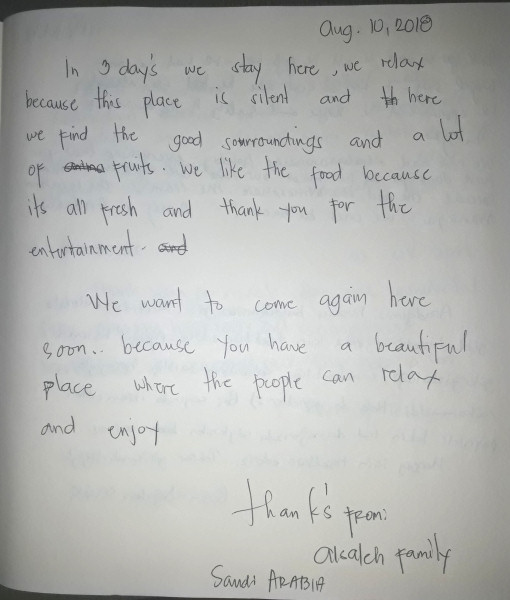 Aug. 10, 2018
In 3 day's we stay here, we relax
because this place is silent and th here
we find the good sourroundings and a lot
of fruits. We like the food because
its all fresh and thank you for the
entertainment. and
We want to come again here
soon.. because you have a beautiful
place where the people can relax
and enjoy
thank's from:
family
Saudi ARABIA